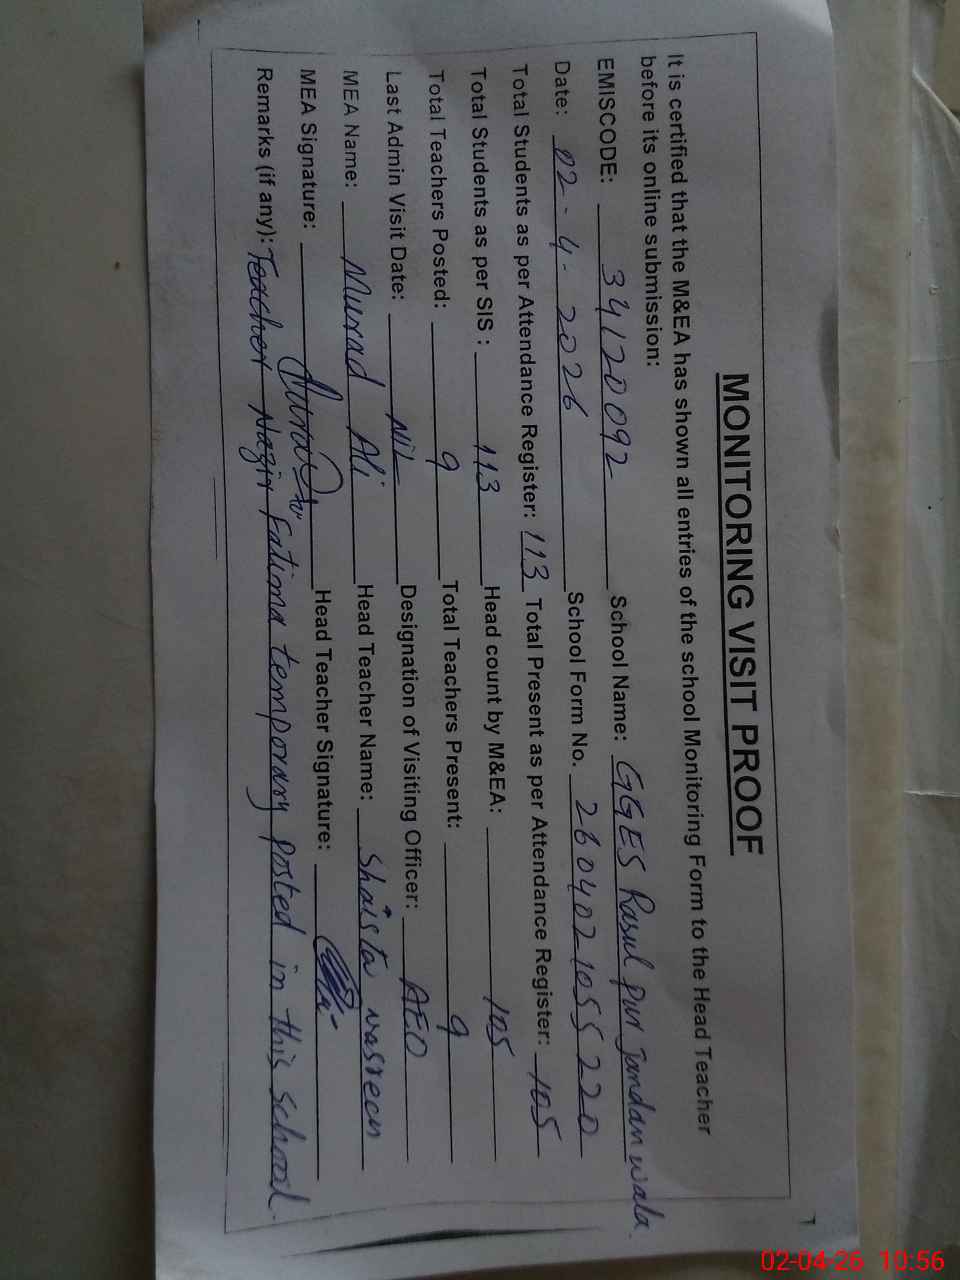 MONITORING VISIT PROOF
It is certified that the M&EA has shown all entries of the school Monitoring Form to the Head Teacher
before its online submission:
EMISCODE: 34120092 School Name: GGES Rasul pur Jandanwala
Date: 02-4-2026 School Form No. 2604021055220
Total Students as per Attendance Register: 113 Total Present as per Attendance Register: 105
Total Students as per SIS : 113 Head count by M&EA: 105
Total Teachers Posted: 9 Total Teachers Present: 9
Last Admin Visit Date: NiL Designation of Visiting Officer: AEO
MEA Name: Murad Ali Head Teacher Name: Shaista nasreen
MEA Signature: Head Teacher Signature:
Remarks (if any): Teacher Nazir Fatima temporary posted in this school.
02-04-26 10:56